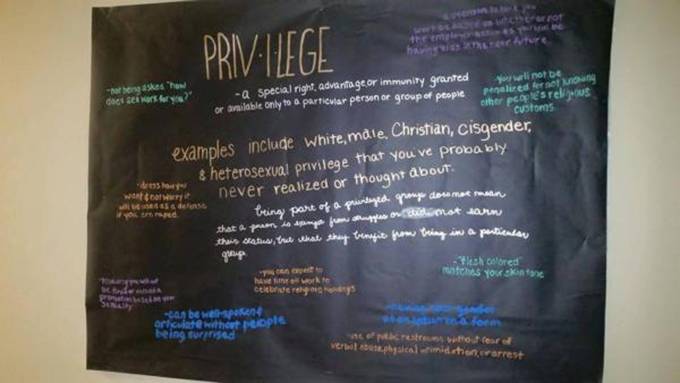 PRIV·I·LEGE
- a special right, advantage, or immunity granted
or available only to a particular person or group of people
work be based on whether or not
the employer assumes you will be
having kids in the near future.
-not being asked "how
does sex work for you?"
-you will not be
penalized for not knowing
other people's religious
customs.
examples include white, male, Christian, cisgender,
& heterosexual privilege that you've probably
never realized or thought about.
-dress how you
want & not worry it
will be used as a defense
if you are raped.
being part of a privileged group does not mean
that a person is exempt from struggles or did not earn
their status, but that they benefit from being in a particular
group.
-"flesh colored"
matches your skin tone
-knowing you will not
be fired or denied a
promotion based on your
sexuality
-you can expect to
have time off work to
celebrate religious holidays
-can be well-spoken &
articulate without people
being surprised
-having your gender
as an option on a form
-use of public restrooms without fear of
verbal abuse, physical intimidation, or arrest